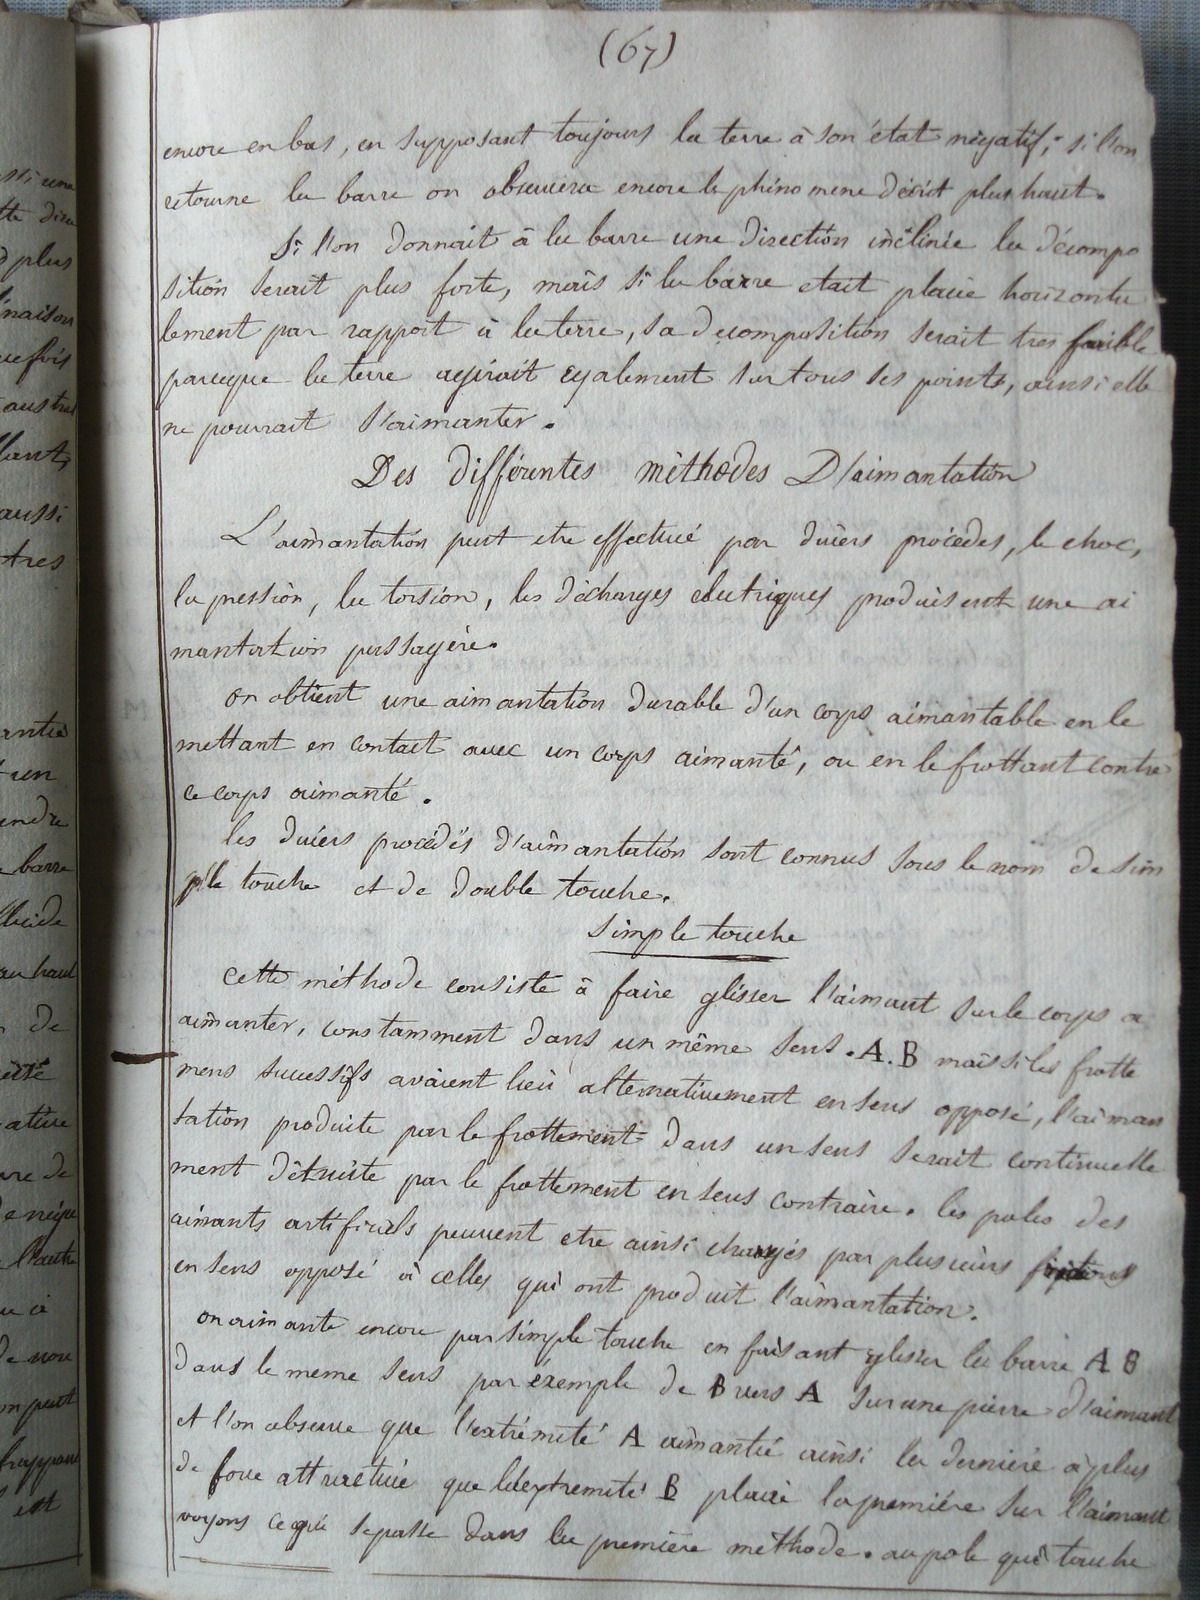 (67)
encore en bas, en supposant toujours la terre à son état négatif; si l'on
retourne la barre on observera encore le phénomene décrit plus haut.
Si l'on donnait à la barre une direction inclinée la décompo
sition serait plus forte, mais si la barre etait placée horizonta
lement par rapport à la terre, sa decomposition serait tres faible
parceque la terre agirait egalement sur tous ses points, ainsi elle
ne pourrait s'aimanter.
Des différentes méthodes D'aimantation
L'aimantation peut etre effectué par divers procédes, le choc,
la pression, la torsion, les décharges electriques produisent une ai
mantation passagère.
on obtient une aimantation durable d'un corps aimantable en le
mettant en contact avec un corps aimanté, ou en le frottant contre
ce corps aimanté.
les divers procédés d'aimantation sont connus sous le nom de sim
ple touche et de double touche.
Simple touche
cette méthode consiste à faire glisser l'aimant sur le corps a
aimanter, constamment dans un même sens. A.B mais si les frotte
mens successifs avaient lieu alternativement en sens opposé, l'aiman
tation produite par le frottement dans un sens serait continuelle
ment détruite par le frottement en sens contraire. les poles des
aimants artificiels peuvent etre ainsi changés par plusieurs
en sens opposé à celles qui ont produit l'aimantation.
on aimante encore par simple touche en faisant glisser la barre A B
dans le meme sens par éxemple de B vers A sur une pierre d'aimant
et l'on observe que l'extrémité A aimantée ainsi la derniere a plus
de force attractive que l'extremité B placée la premiére sur l'aimant
voyons ce qui se passe dans la premiere méthode. au pole qui touche
ssi une
plus
naison
austral
aussi
tres
un
barre
au haut
de